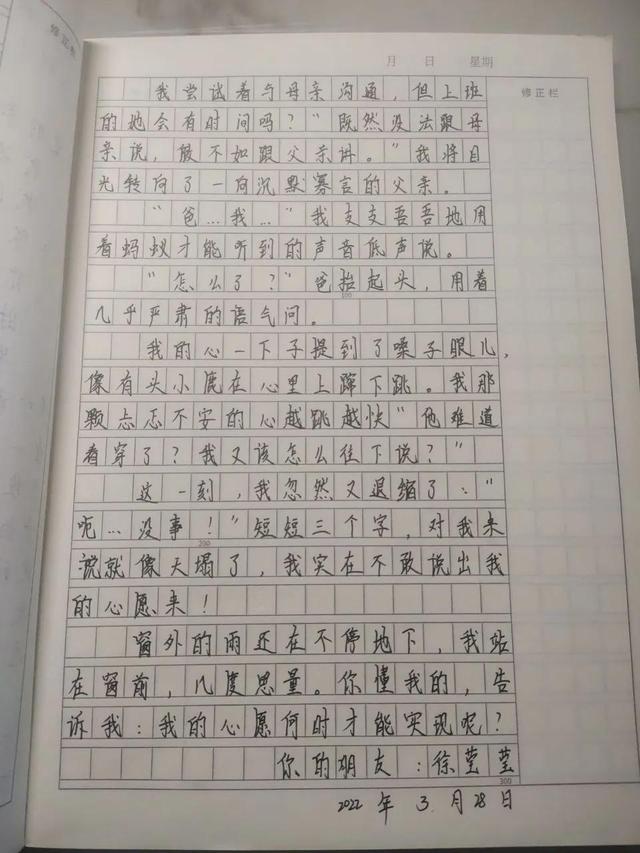 月 日 星期
修正栏
修正栏
我尝试着与母亲沟通，但上班
的她会有时间吗？"既然没法跟母
亲说，散不如跟父亲讲。"我将目
光转向了一向沉默寡言的父亲。
"爸…我…"我支支吾吾地用
着蚂蚁才能听到的声音低声说。
"怎么了？"爸抬起头，用着
100
几乎严肃的语气问。
我的心一下子提到了嗓子眼儿，
像有头小鹿在心里上蹿下跳。我那
颗忐忑不安的心越跳越快"他难道
看穿了？我又该怎么往下说？"
这一刻，我忽然又退缩了："
呃…没事！"短短三个字，对我来
200
说就像天塌了，我实在不敢说出我
的心愿来！
窗外的雨还在不停地下，我站
在窗前，几度思量。你懂我的，告
诉我：我的心愿何时才能实现呢？
你的朋友：徐莹莹
300
2022年3月28日